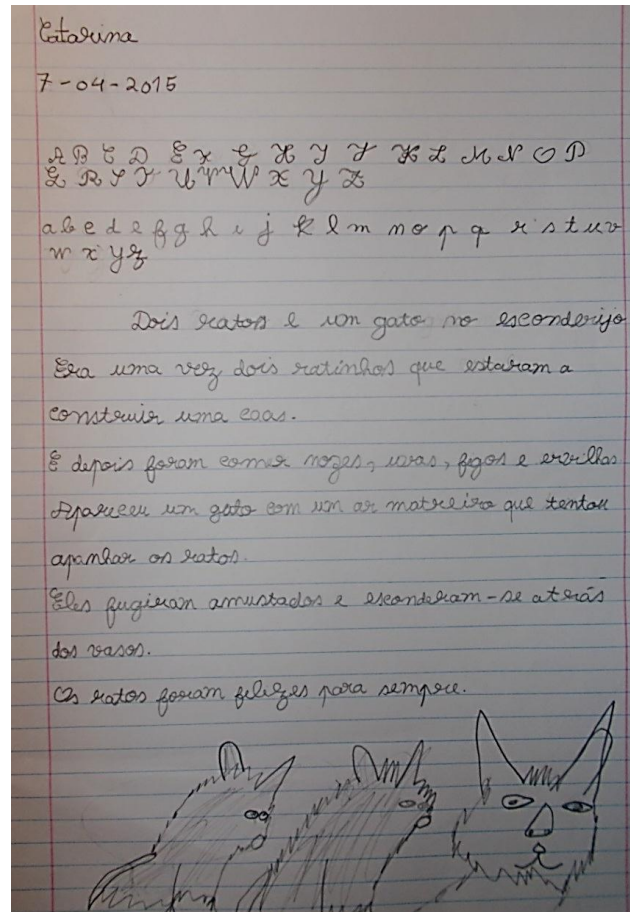 Catarina
7-04-2015
A B C D E X G H I J K L M N O P
Q R S T U V W X Y Z
a b c d e f g h i j k l m n o p q r s t u v
w x y z
Dois ratos e um gato no esconderijo
Era uma vez dois ratinhos que estavam a
construir uma caas.
E depois foram comer nozes, uvas, figos e ervilhas
Apareceu um gato com um ar matreiro que tentou
apanhar os ratos.
Eles fugiram amustados e esconderam-se atrás
dos vasos.
Os ratos foram felizes para sempre.